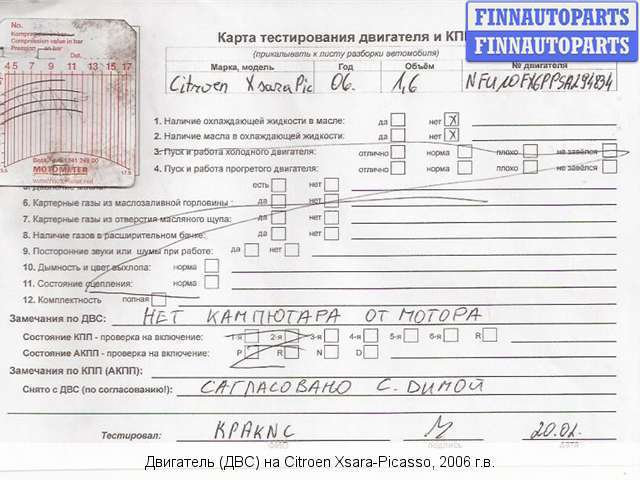 FINNAUTOPARTS
FINNAUTOPARTS
No.
Kompressionsdruck in bar
Compression value in bar
Pression en bar
Dat.
4 5 9 11 13 15 17
MOTOMETER
17.5
Карта тестирования двигателя и КПП
(прикалывать к листу разборки автомобиля)
Марка, модель Год Объём № двигателя
Citroen Xsara Pic 06. 1,6
1. Наличие охлаждающей жидкости в масле: да нет X
2. Наличие масла в охлаждающей жидкости: да нет X
3. Пуск и работа холодного двигателя: отлично норма плохо не завёлся
4. Пуск и работа прогретого двигателя: отлично норма плохо не завёлся
есть нет
6. Картерные газы из маслозаливной горловины : да нет
7. Картерные газы из отверстия масляного щупа: да нет
8. Наличие газов в расширительном бачке: да нет
9. Посторонние звуки или шумы при работе: да нет
10. Дымность и цвет выхлопа: норма
11. Состояние сцепления: норма
12. Комплектность полная
Замечания по ДВС: НЕТ КАМПЮТАРА ОТ МОТОРА
Состояние КПП - проверка на включение: 1-я 2-я 3-я 4-я 5-я 6-я R
Состояние АКПП - проверка на включение: P R N D
Замечания по КПП (АКПП):
Снято с ДВС (по согласованию!): САГЛАСОВАНО С. ДИМОЙ
Тестировал: 20.02.
подпись дата
Двигатель (ДВС) на Citroen Xsara-Picasso, 2006 г.в.